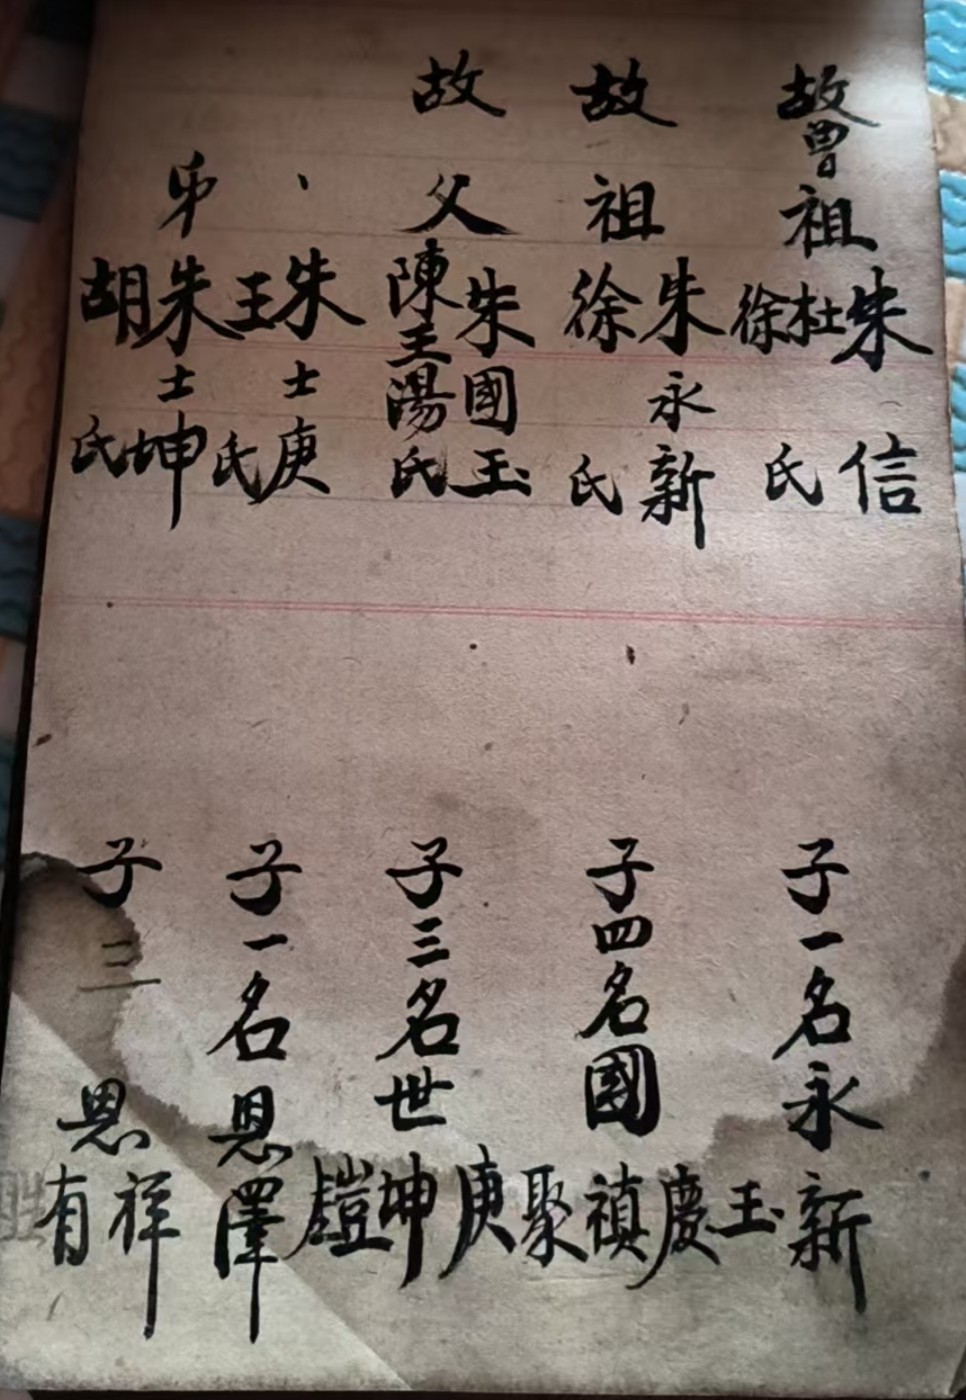 故曾祖朱信
杜徐氏
子一名永新
故祖朱永新
徐氏
子四名國玉慶禎聚
故父朱國玉
陳王湯氏
子三名世庚坤鎧
、朱士庚
王氏
子一名恩澤
弟朱士坤
胡氏
子二
恩祥有